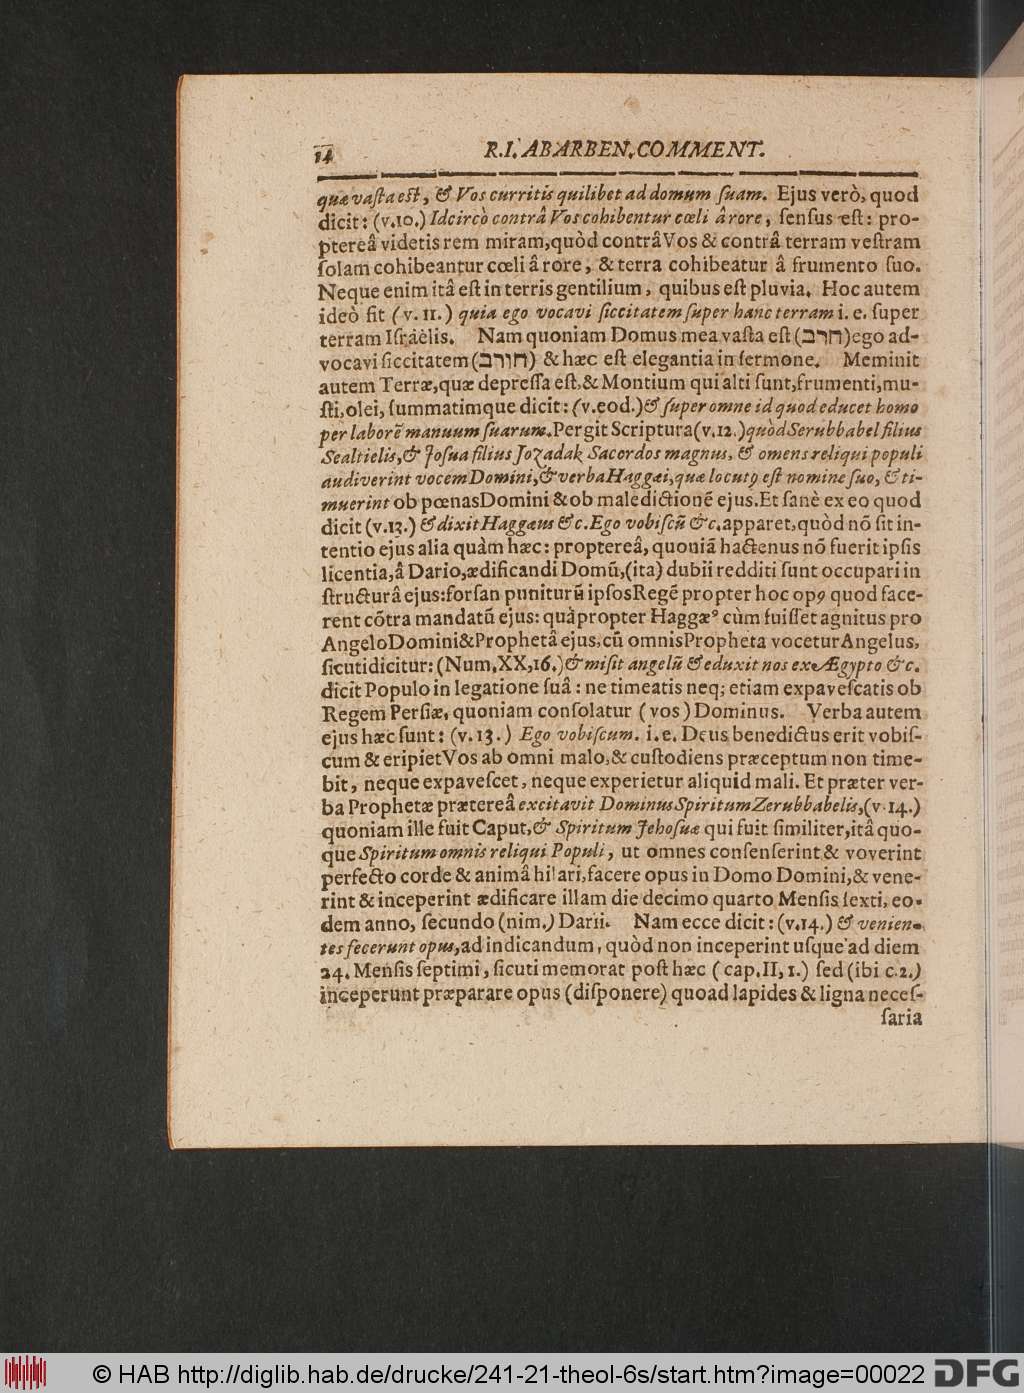 14 R.I. ABARBEN. COMMENT.
quæ vaſta eſt, & Vos curritis quilibet ad domum ſuam. Ejus verò, quod
dicit: (v.10.) Idcircò contrâ Vos cohibentur cœli â rore, ſenſus eſt: pro-
ptereâ videtis rem miram, quòd contrâ Vos & contrâ terram veſtram
ſolam cohibeantur cœli â rore, & terra cohibeatur â frumento ſuo.
Neque enim itâ eſt in terris gentilium, quibus eſt pluvia. Hoc autem
ideò fit (v. 11.) quia ego vocavi ſiccitatem ſuper hanc terram i. e. ſuper
terram Iſraèlis. Nam quoniam Domus mea vaſta eſt (חרב) ego ad-
vocavi ſiccitatem (חורב) & hæc eſt elegantia in ſermone. Meminit
autem Terræ, quæ depreſſa eſt, & Montium qui alti ſunt, frumenti, mu-
ſti, olei, ſummatimque dicit: (v.eod.) & ſuper omne id quod educet homo
per laborẽ manuum ſuarum. Pergit Scriptura (v.12.) quòd Serubbabel filius
Sealtielis, & Joſua filius Jozadak Sacerdos magnus, & omens reliqui populi
audiverint vocem Domini, & verba Haggæi, quæ locutꝰ eſt nomine ſuo, & ti-
muerint ob pœnas Domini & ob maledictionẽ ejus. Et ſanè ex eo quod
dicit (v.13.) & dixit Haggæus &c. Ego vobiſcũ &c. apparet, quòd nõ ſit in-
tentio ejus alia quàm hæc: proptereâ, quoniã hactenus nõ fuerit ipſis
licentia, â Dario, ædificandi Domũ, (ita) dubii redditi ſunt occupari in
ſtructurâ ejus: forſan puniturũ ipſos Regẽ propter hoc opꝰ quod face-
rent cõtra mandatũ ejus: quapropter Haggæꝰ cùm fuiſſet agnitus pro
Angelo Domini & Prophetâ ejus, cũ omnis Propheta vocetur Angelus,
ſicuti dicitur: (Num. XX, 16.) & miſit angelũ & eduxit nos ex Ægypto &c.
dicit Populo in legatione ſuâ: ne timeatis neq; etiam expaveſcatis ob
Regem Perſiæ, quoniam conſolatur (vos) Dominus. Verba autem
ejus hæc ſunt: (v. 13.) Ego vobiſcum. i. e. Deus benedictus erit vobiſ-
cum & eripiet Vos ab omni malo, & cuſtodiens præceptum non time-
bit, neque expaveſcet, neque experietur aliquid mali. Et præter ver-
ba Prophetæ prætereâ excitavit Dominus Spiritum Zerubbabelis, (v. 14.)
quoniam ille fuit Caput, & Spiritum Jehoſuæ qui fuit ſimiliter, itâ quo-
que Spiritum omnis reliqui Populi, ut omnes conſenſerint & voverint
perfecto corde & animâ hilari, facere opus in Domo Domini, & vene-
rint & inceperint ædificare illam die decimo quarto Menſis ſexti, eo-
dem anno, ſecundo (nim.) Darii. Nam ecce dicit: (v.14.) & venien-
tes fecerunt opus, ad indicandum, quòd non inceperint uſque ad diem
24. Menſis ſeptimi, ſicuti memorat poſt hæc (cap. II, 1.) ſed (ibi c.2.)
inceperunt præparare opus (diſponere) quoad lapides & ligna neceſ-
ſaria
© HAB http://diglib.hab.de/drucke/241-21-theol-6s/start.htm?image=00022 DFG